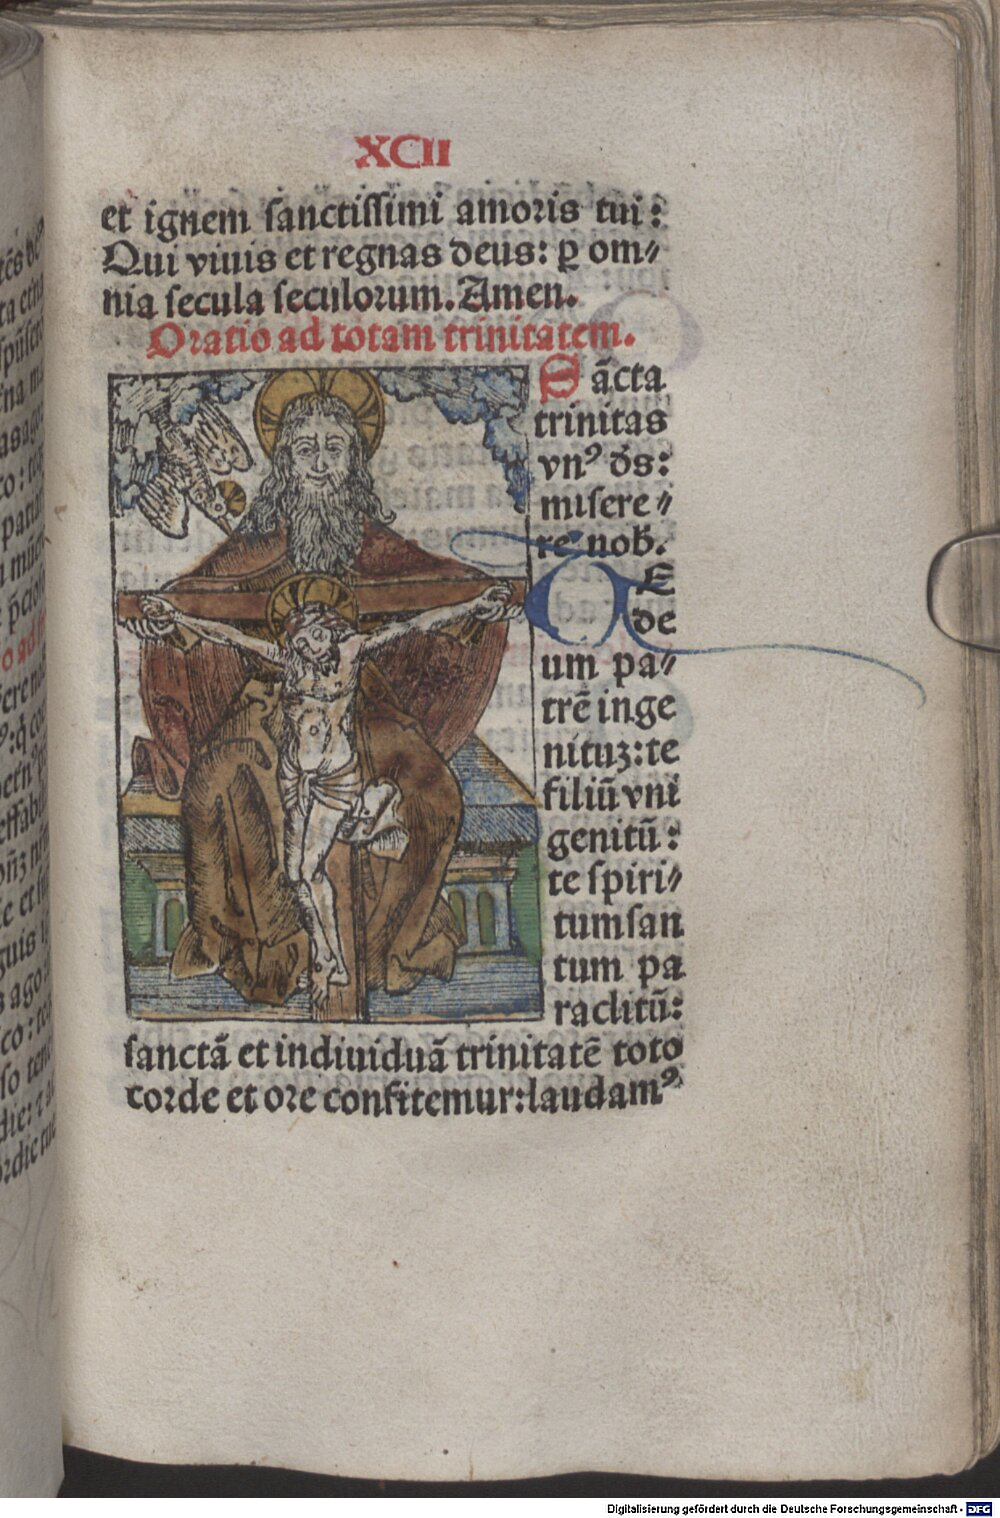 XCII
et ignem sanctissimi amoris tui:
Qui viuis et regnas deus: ꝑ om⸗
nia secula seculorum. Amen.
Oratio ad totam trinitatem.
Sācta
trinitas
vnꝰ ds̄:
misere⸗
re nob̄.
TE
de
um pa⸗
trē inge
nituꝫ: te
filiū vni
genitū:
te spiri⸗
tum san
tum pa
raclitū:
sanctā et indiuiduā trinitatē toto
corde et ore confitemur: laudamꝰ
Digitalisierung gefördert durch die Deutsche Forschungsgemeinschaft - DFG